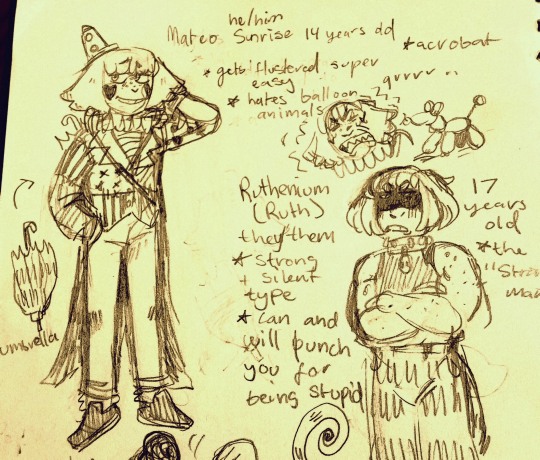 he/him
Mateo Sunrise 14 years old
*acrobat
*gets flustered super
easy
*hates balloon
animals
grrrr
umbrella
Ruthenium
(Ruth)
they/them
*strong
+ silent
type
*can and
will punch
you for
being stupid
17
years
old
*the
"Strong
man